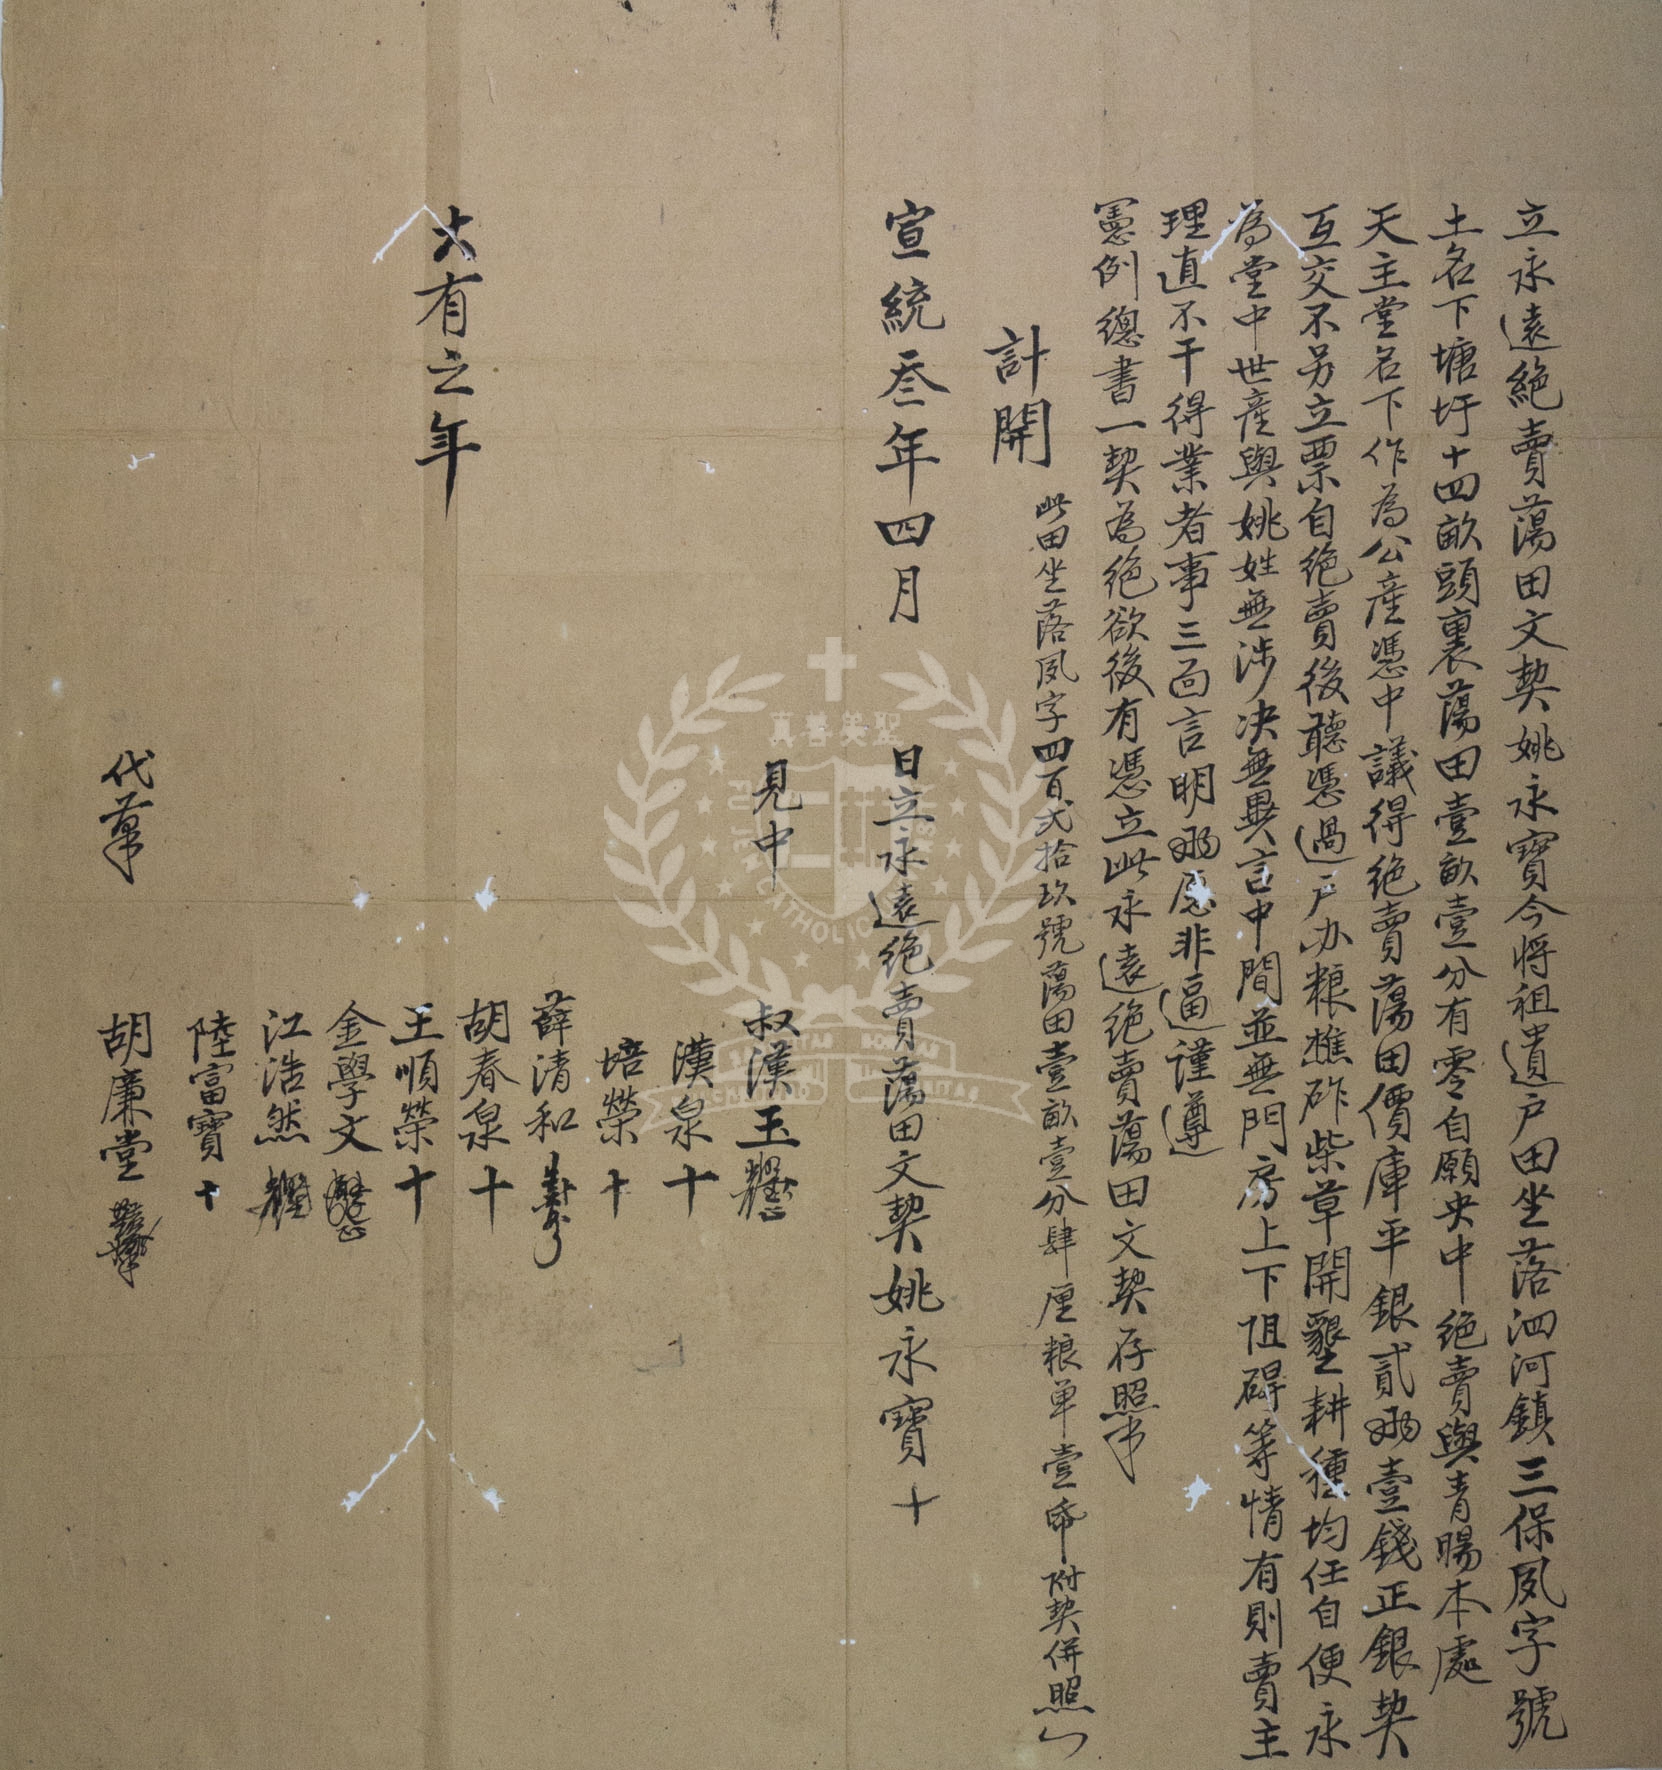 立永遠絕賣蕩田文契姚永寶今將祖遺戶田坐落泗河鎮三保夙字號
土名下塘圩十四畝頭裏蕩田壹畝壹分有零自願央中絕賣與青暘本處
天主堂名下作為公產憑中議得絕賣蕩田價庫平銀貳兩壹錢正銀契
互交不另立票自絕賣後聽憑過戶办粮樵斫柴草開墾耕種均任自便永
為堂中世產與姚姓無涉决無異言中間並無門房上下阻碍等情有則賣主
理直不干得業者事三面言明兩愿非逼謹遵
憲例總書一契為絕欲後有憑立此永遠絕賣蕩田文契存照
計開
此田坐落夙字四百弍拾玖號蕩田壹畝壹分肆厘粮单壹帋附契併照
宣統叁年四月 日立永遠絕賣蕩田文契姚永寶十
見中
叔漢玉
漢泉十
培榮十
薛清和
胡春泉十
大有之年
王順榮十
金學文
江浩然
陸富寶十
代筆
胡廉堂
真善美聖
CATHOLIC